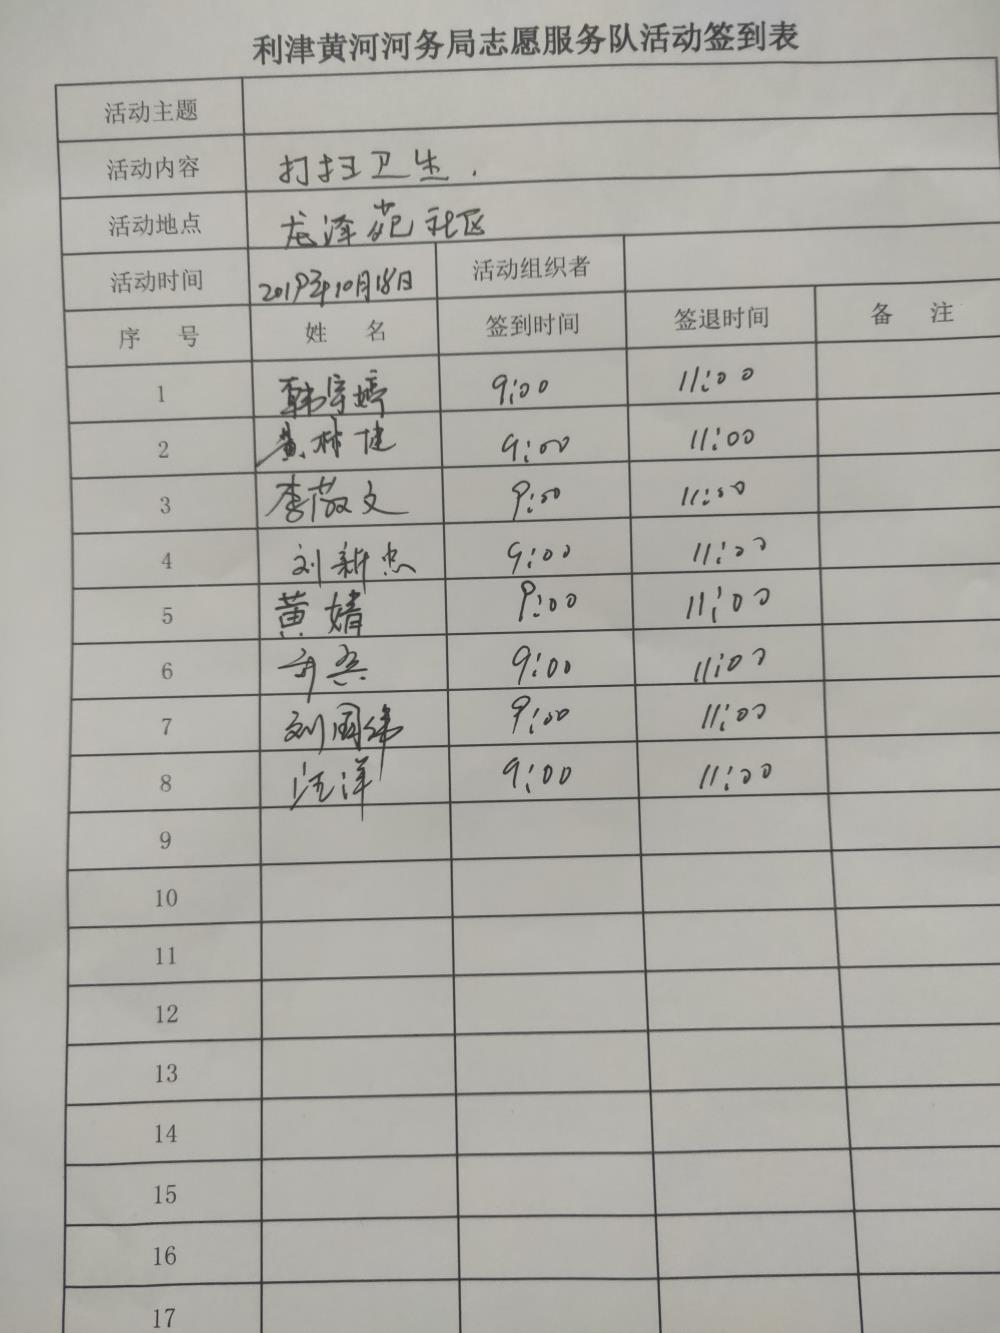 利津黄河河务局志愿服务队活动签到表
活动主题
活动内容 打扫卫生.
活动地点 龙泽苑社区
活动时间 2019年10月18日 活动组织者
序 号 姓 名 签到时间 签退时间 备 注
1 韩宇婷 9:00 11:00
2 黄林 9:00 11:00
3 李敬文 9:00 11:00
4 刘新忠 9:00 11:00
5 黄婧 9:00 11:00
6 9:00 11:00
7 刘国伟 9:00 11:00
8 汪洋 9:00 11:00
9
10
11
12
13
14
15
16
17